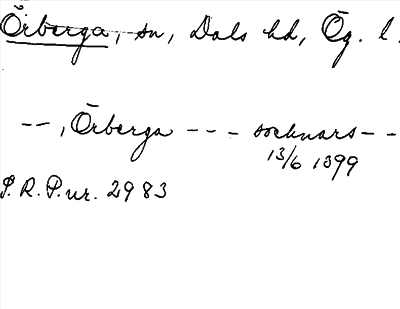 Örberga, sn, Dals hd, Ög. l.
--, Örberga --- socknars --
13/6 1399
S.R.P. nr. 2983